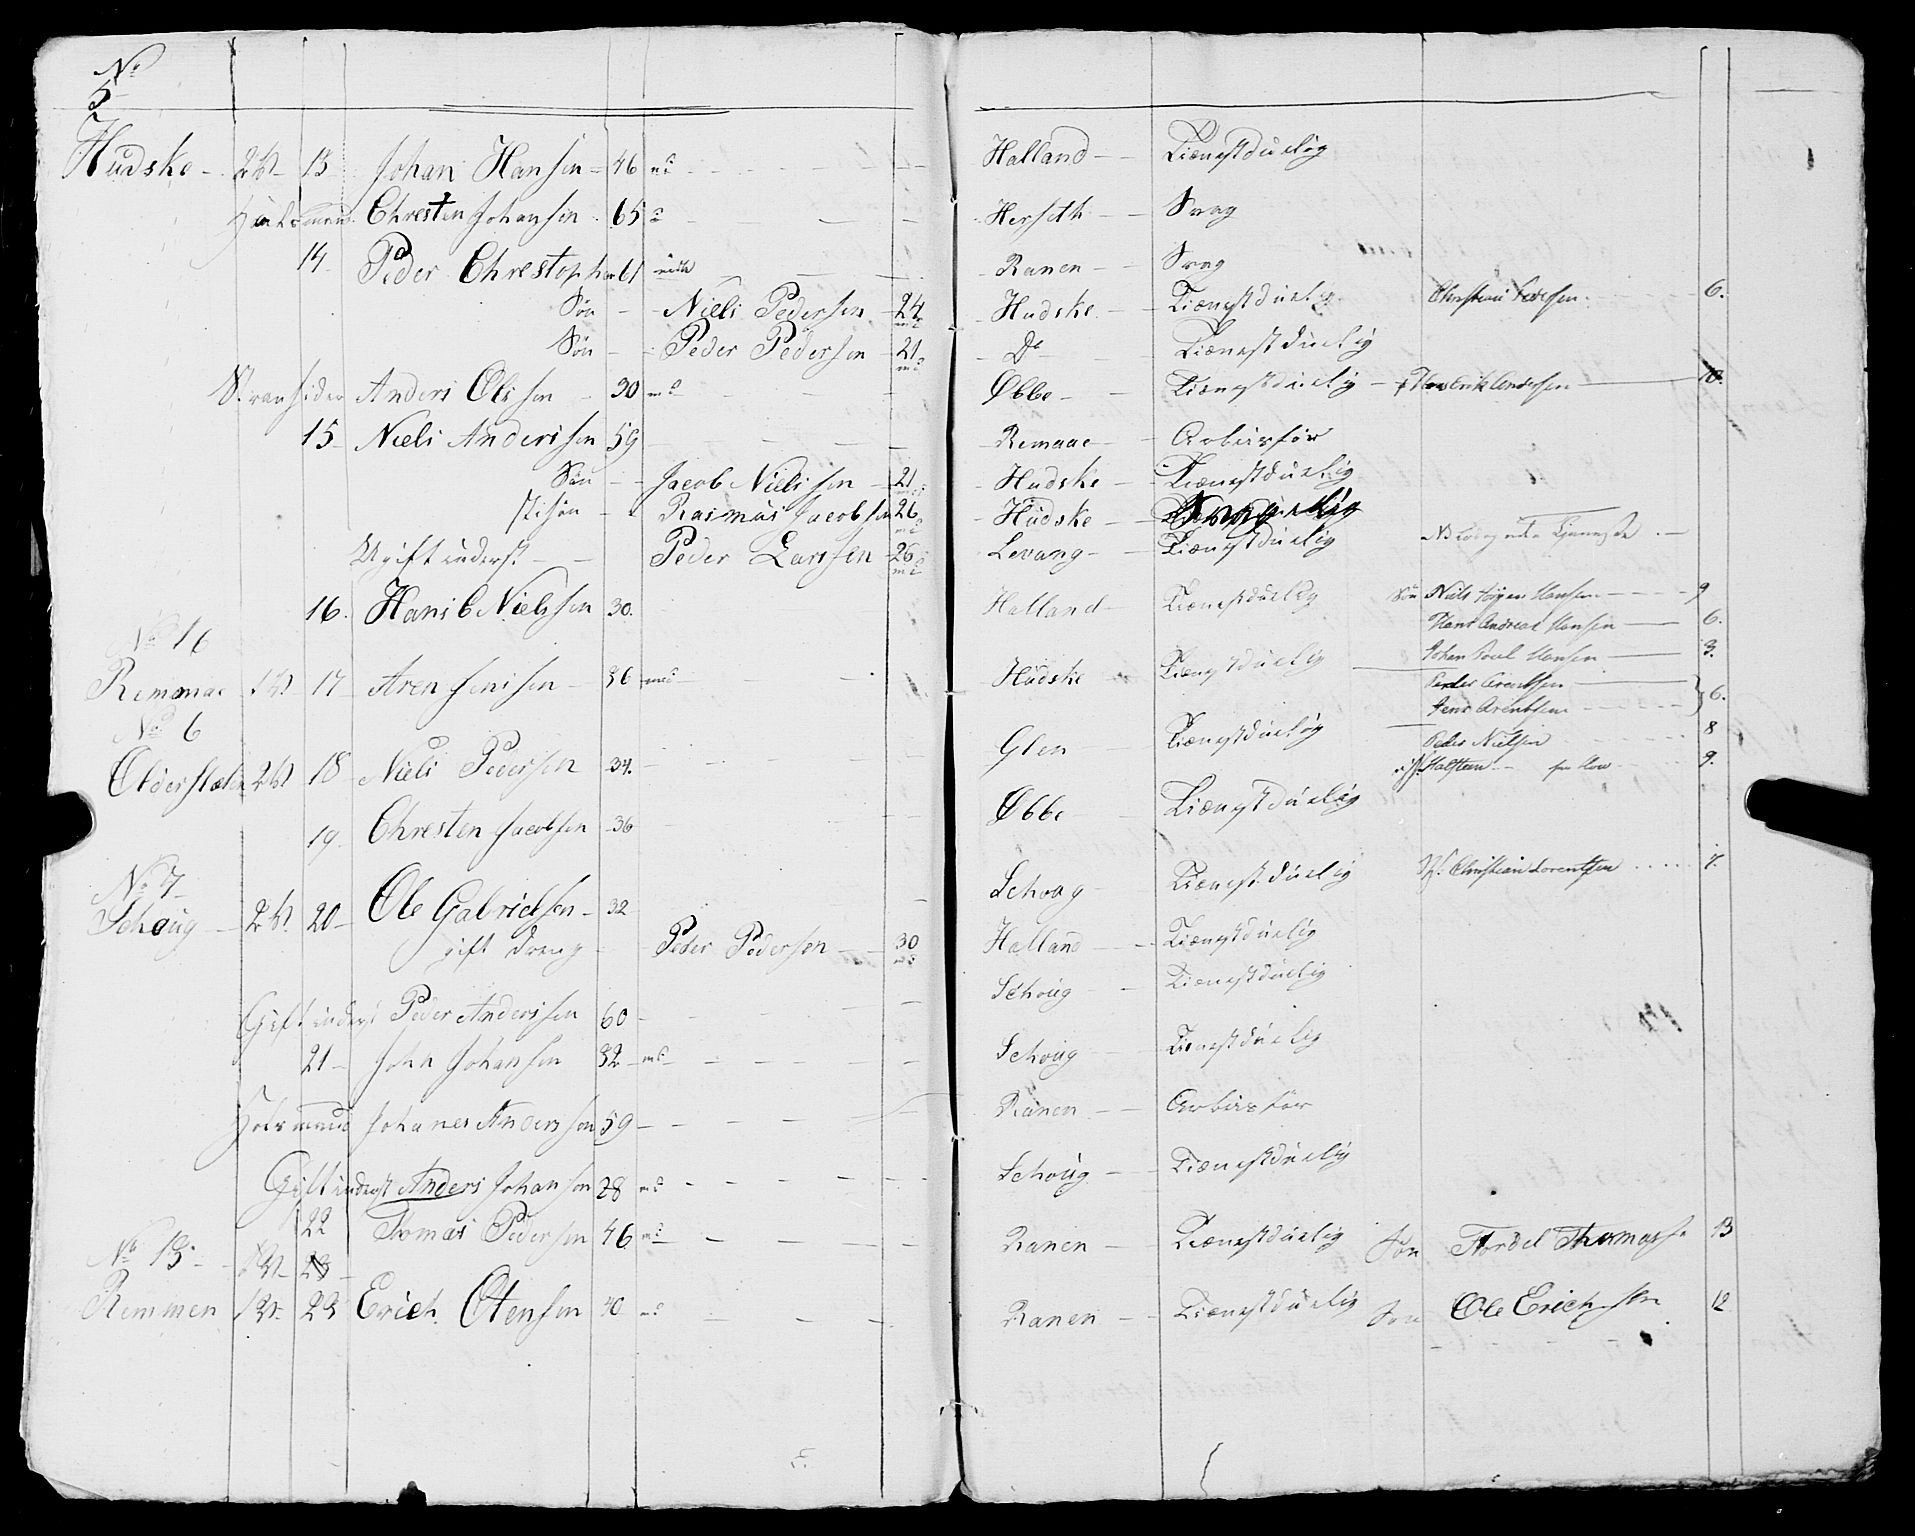 No
5
Hudske - 2 13 Johan Hansen - 46 Halland - Tienestduelig
Huusmand Chresten Johansen 65 Herseth Svag
14 Peder Chrestophe 61 Ranen Svag
Søn Niels Pedersen 24 Hudske Tienestduelig Christian 6.
Søn Peder Pedersen 21 Do Tienestduelig
Stransider Anders Olssen 30 Øbbe Tienestduelig 10.
15 Niels Anderssen 59 Remaae Arbeisfør
Søn Jacob Nielssen 21 Hudske Tienestduelig
stisøn Rasmus Jacobsen 26 Hudske Svagelig
Ugift inderst Peder Larssen 26 Levang Tienestduelig
16. Hans C Nielssen 30. Halland Tienestduelig Søn Niels Jørgen Hansen 9
Hans Andreas Hansen 6.
No 16
Johan Poul Hansen 3.
Remmae 17 Aren Jensen 36 Hudske Tienestduelig
Peder Arentsen
Jens Arentsen 6.
No 6
Olderskolen 2 18 Niels Pedersen 34. Glen Tienestduelig Peder Nielsen 8
9.
19 Chresten Jacobsen 36 Øbbe Tienestduelig
No 7
Schoug 2 20 Ole Gabrielsen 32 Schoag Tienestduelig Christian Lorentsen 7
gift dreng Peder Pedersen 30 Halland Tienestduelig
Gift inderst Peder Anderssen 60 Schoug Tienestduelig
21 John Johansen 32 Schoug Tienestduelig
Hosmand Johanes Anderssen 59 Ranen Arbeisfør
Gift inderst Anders Johansen 28 Schoug Tienestduelig
22 Thomas Pedersen 46 Ranen Tienestduelig Søn Tordel Thomasse 13
No 15 23
Remmen 23 Erich Otensen 40 Ranen Tienestduelig Søn Ole Erichsen 12